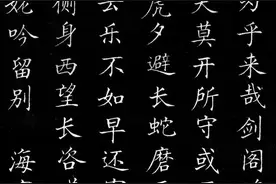 为乎来哉剑阁
夫莫开所守或
虎夕避长蛇磨
云乐不如早还
侧身西望长咨
姥吟留别 海